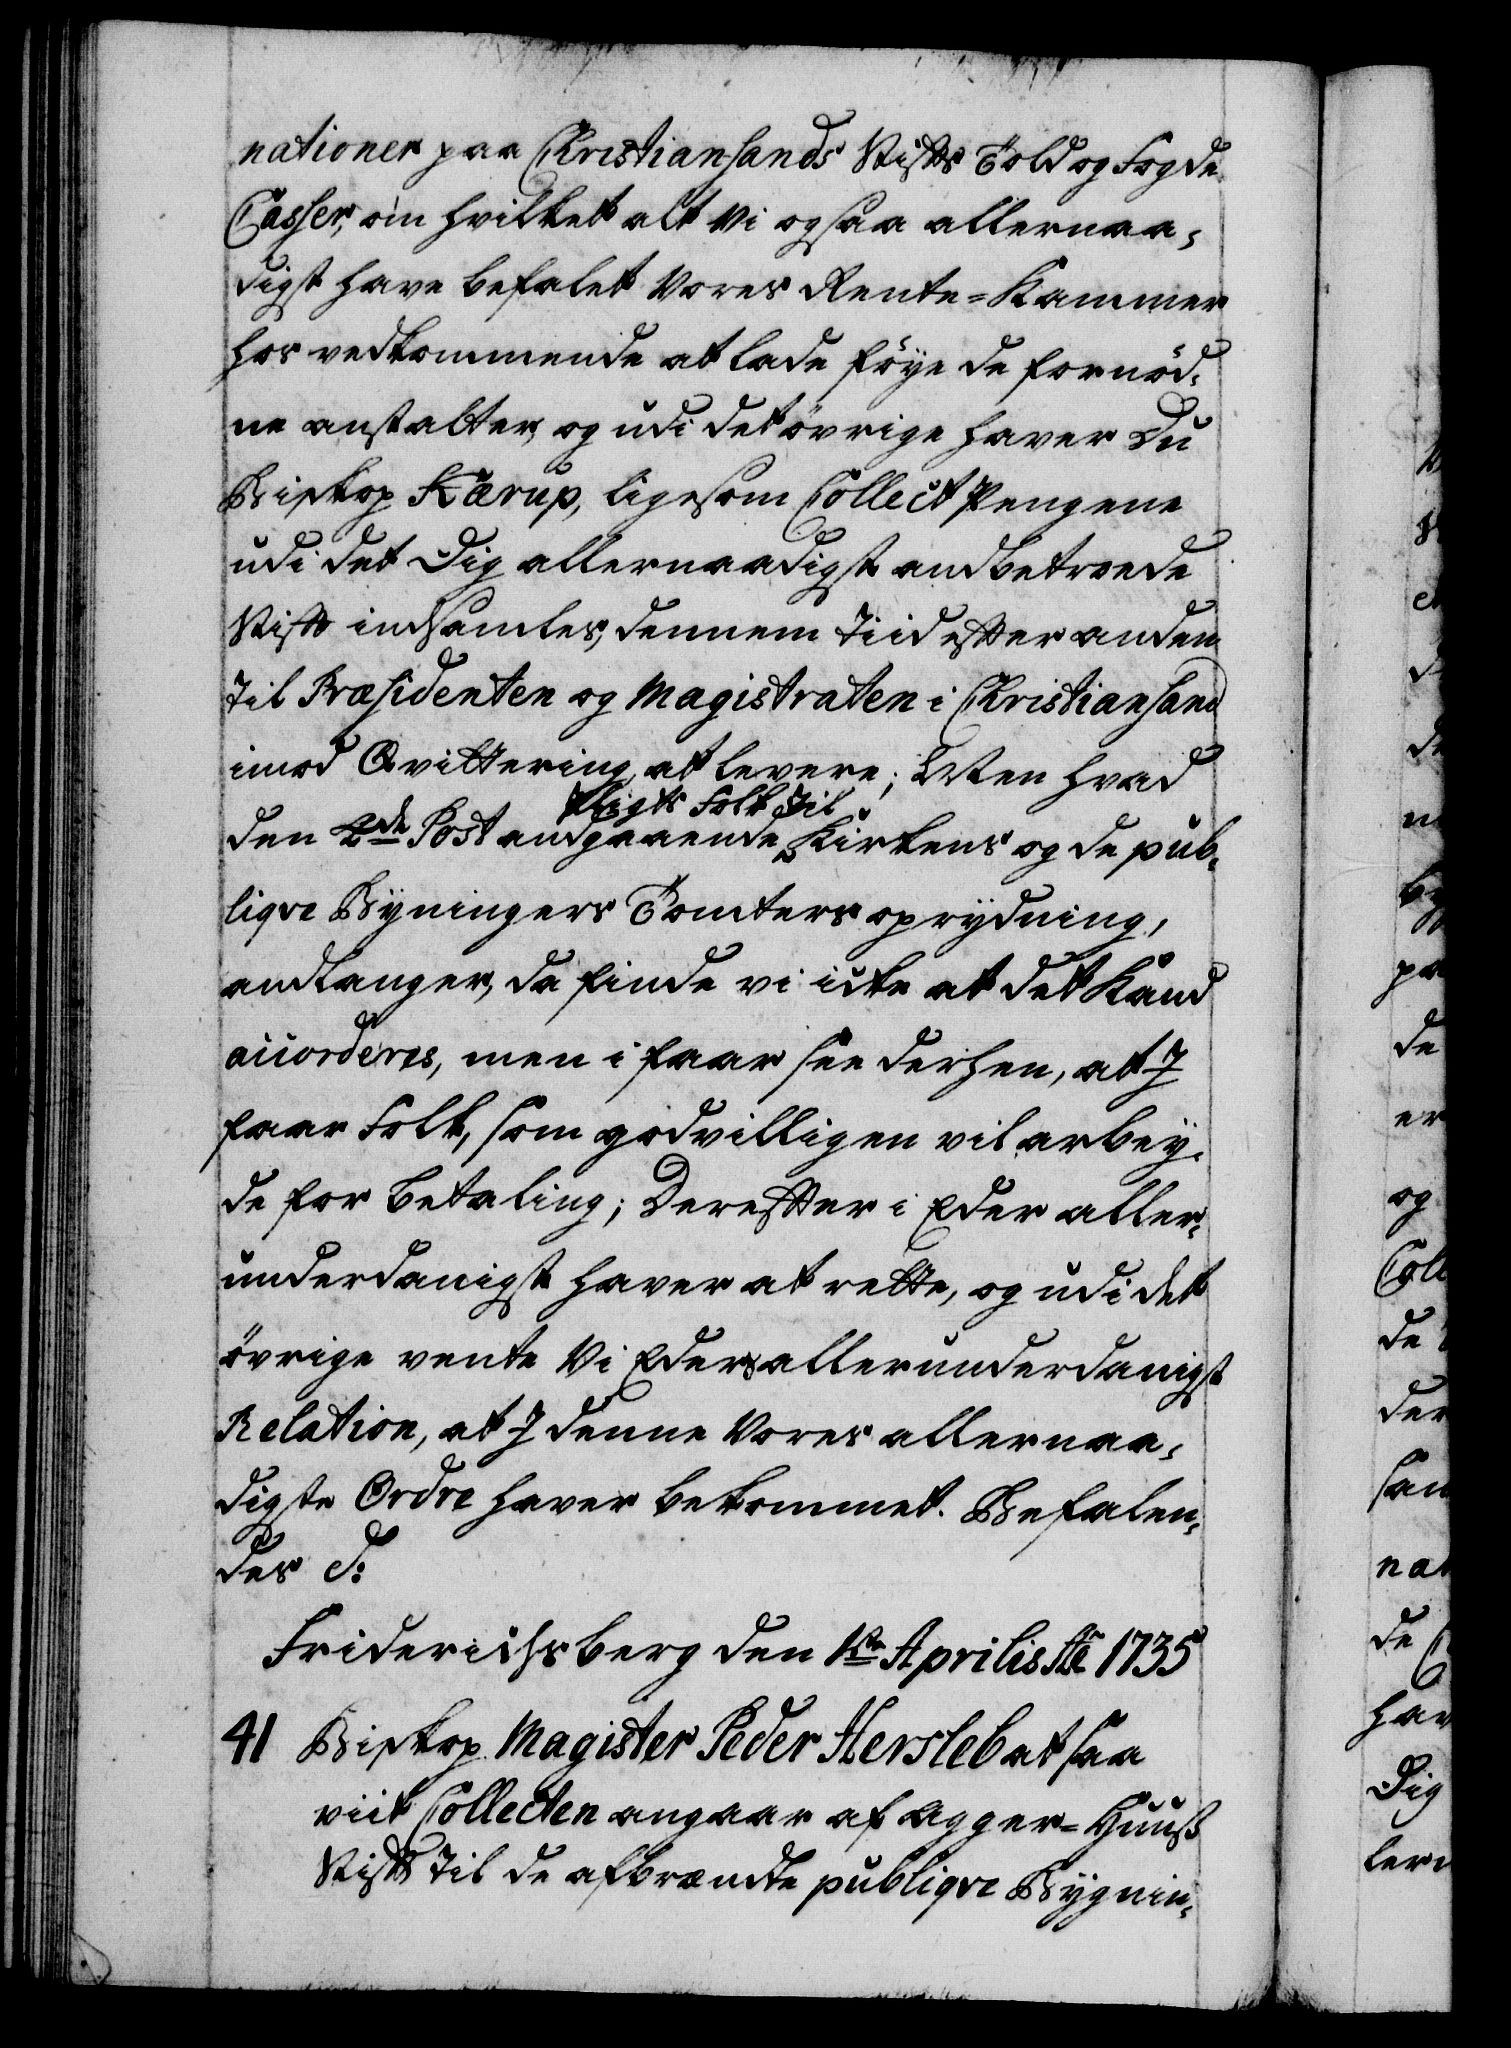 nationer paa Christiansands Stifts Told og Fogde
Casser, om hvilket alt Vi ogsaa allernaa-
digst have befalet Vores Rente-Kammer
hos vedkommende at lade föye de fornöd-
ne anstalter, og udi det övrige haver Du
Biskop Kærup, ligesom Collect Pengene
udi det Dig allernaadigst anbetroede
Stift indsamles, dennem Tiid efter anden
til Præsidenten og Magistraten i Christiansand
imod Qvittering at levere; Men hvad
pligts Folk til
den 2de Post andgaaende Kirkens og de pub-
liqve Bygningers Tomters oprydning,
andlanger, da finde vi icke at det Kand
accorderes, men i faar see derhen, at J
faar Folk, som godvilligen vil arbey-
de for betaling; Derefter i Eder aller-
underdanigst haver at rette, og udi det
övrige vente Vi Eders allerunderdanigst
Relation, at J denne Vores allernaa-
digste Ordre haver bekommet. Befalen-
des &:
Friderichsberg den 1ste Aprilis Ao 1735
41 Biskop Magister Peder Hersleb at saa
viit Collecten angaar af Agger-Huuß
Stift til de afbrændte publiqve Bygnin-